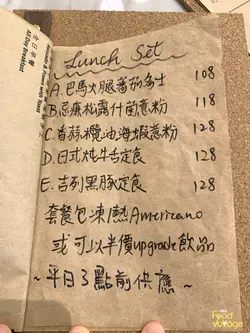 Lunch Set
A. 巴馬火腿蕃茄多士 108
B. 忌廉松露什菌意粉 118
C. 香蒜欖油海蝦意粉 128
D. 日式炖牛舌定食 128
E. 吉列黑豚定食 128
套餐包凍/熱Americano
或可以半價upgrade飲品
~平日3點前供應~
全日早餐
All Day Breakfast
Food Voyage